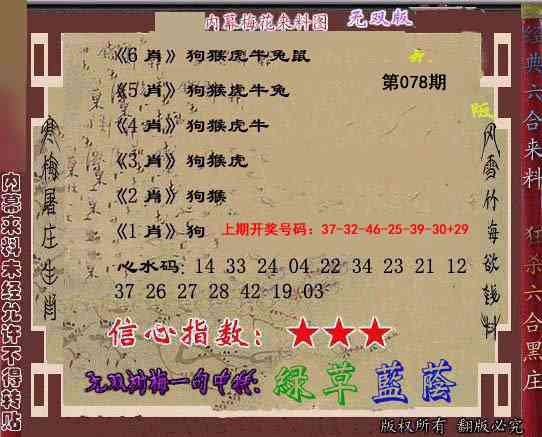 内幕梅花来料图 无双版
《6 肖》狗猴虎牛兔鼠
第078期
《5 肖》狗猴虎牛兔
《4 肖》狗猴虎牛
《3 肖》狗猴虎
《2 肖》狗猴
《1 肖》狗
上期开奖号码：37-32-46-25-39-30+29
心水码: 14 33 24 04 22 34 23 21 12
37 26 27 28 42 19 03
信心指数：★★★
无双刘梅一句中特: 綠草藍蔭
版权所有 翻版必究
寒梅屠庄生肖
风雪竹海欲钱料
内幕来料未经允许不得转贴
经典六合来料 狂杀六合黑庄